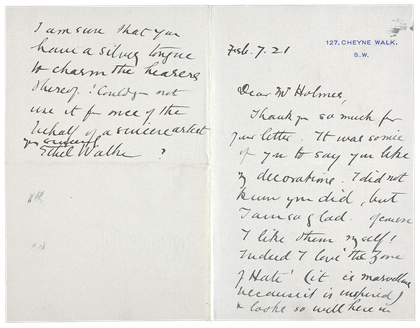 127, CHEYNE WALK,
S.W.
Feb. 7. 21
Dear Mr Holmes,
Thank you so much for
your letter. It was so nice
of you to say you like
my decorations. I did not
know you did, but
I am so glad. Of course
I like them myself!
Indeed I love 'the Zone
of Hate' (it is marvellous
because it is inspired)
& looks so well here in
I am sure that you
have a silver tongue
to charm the hearers
thereof. Could you not
use it for once on the
behalf of a sincere artist
yrs sincerely
Ethel Walker ?